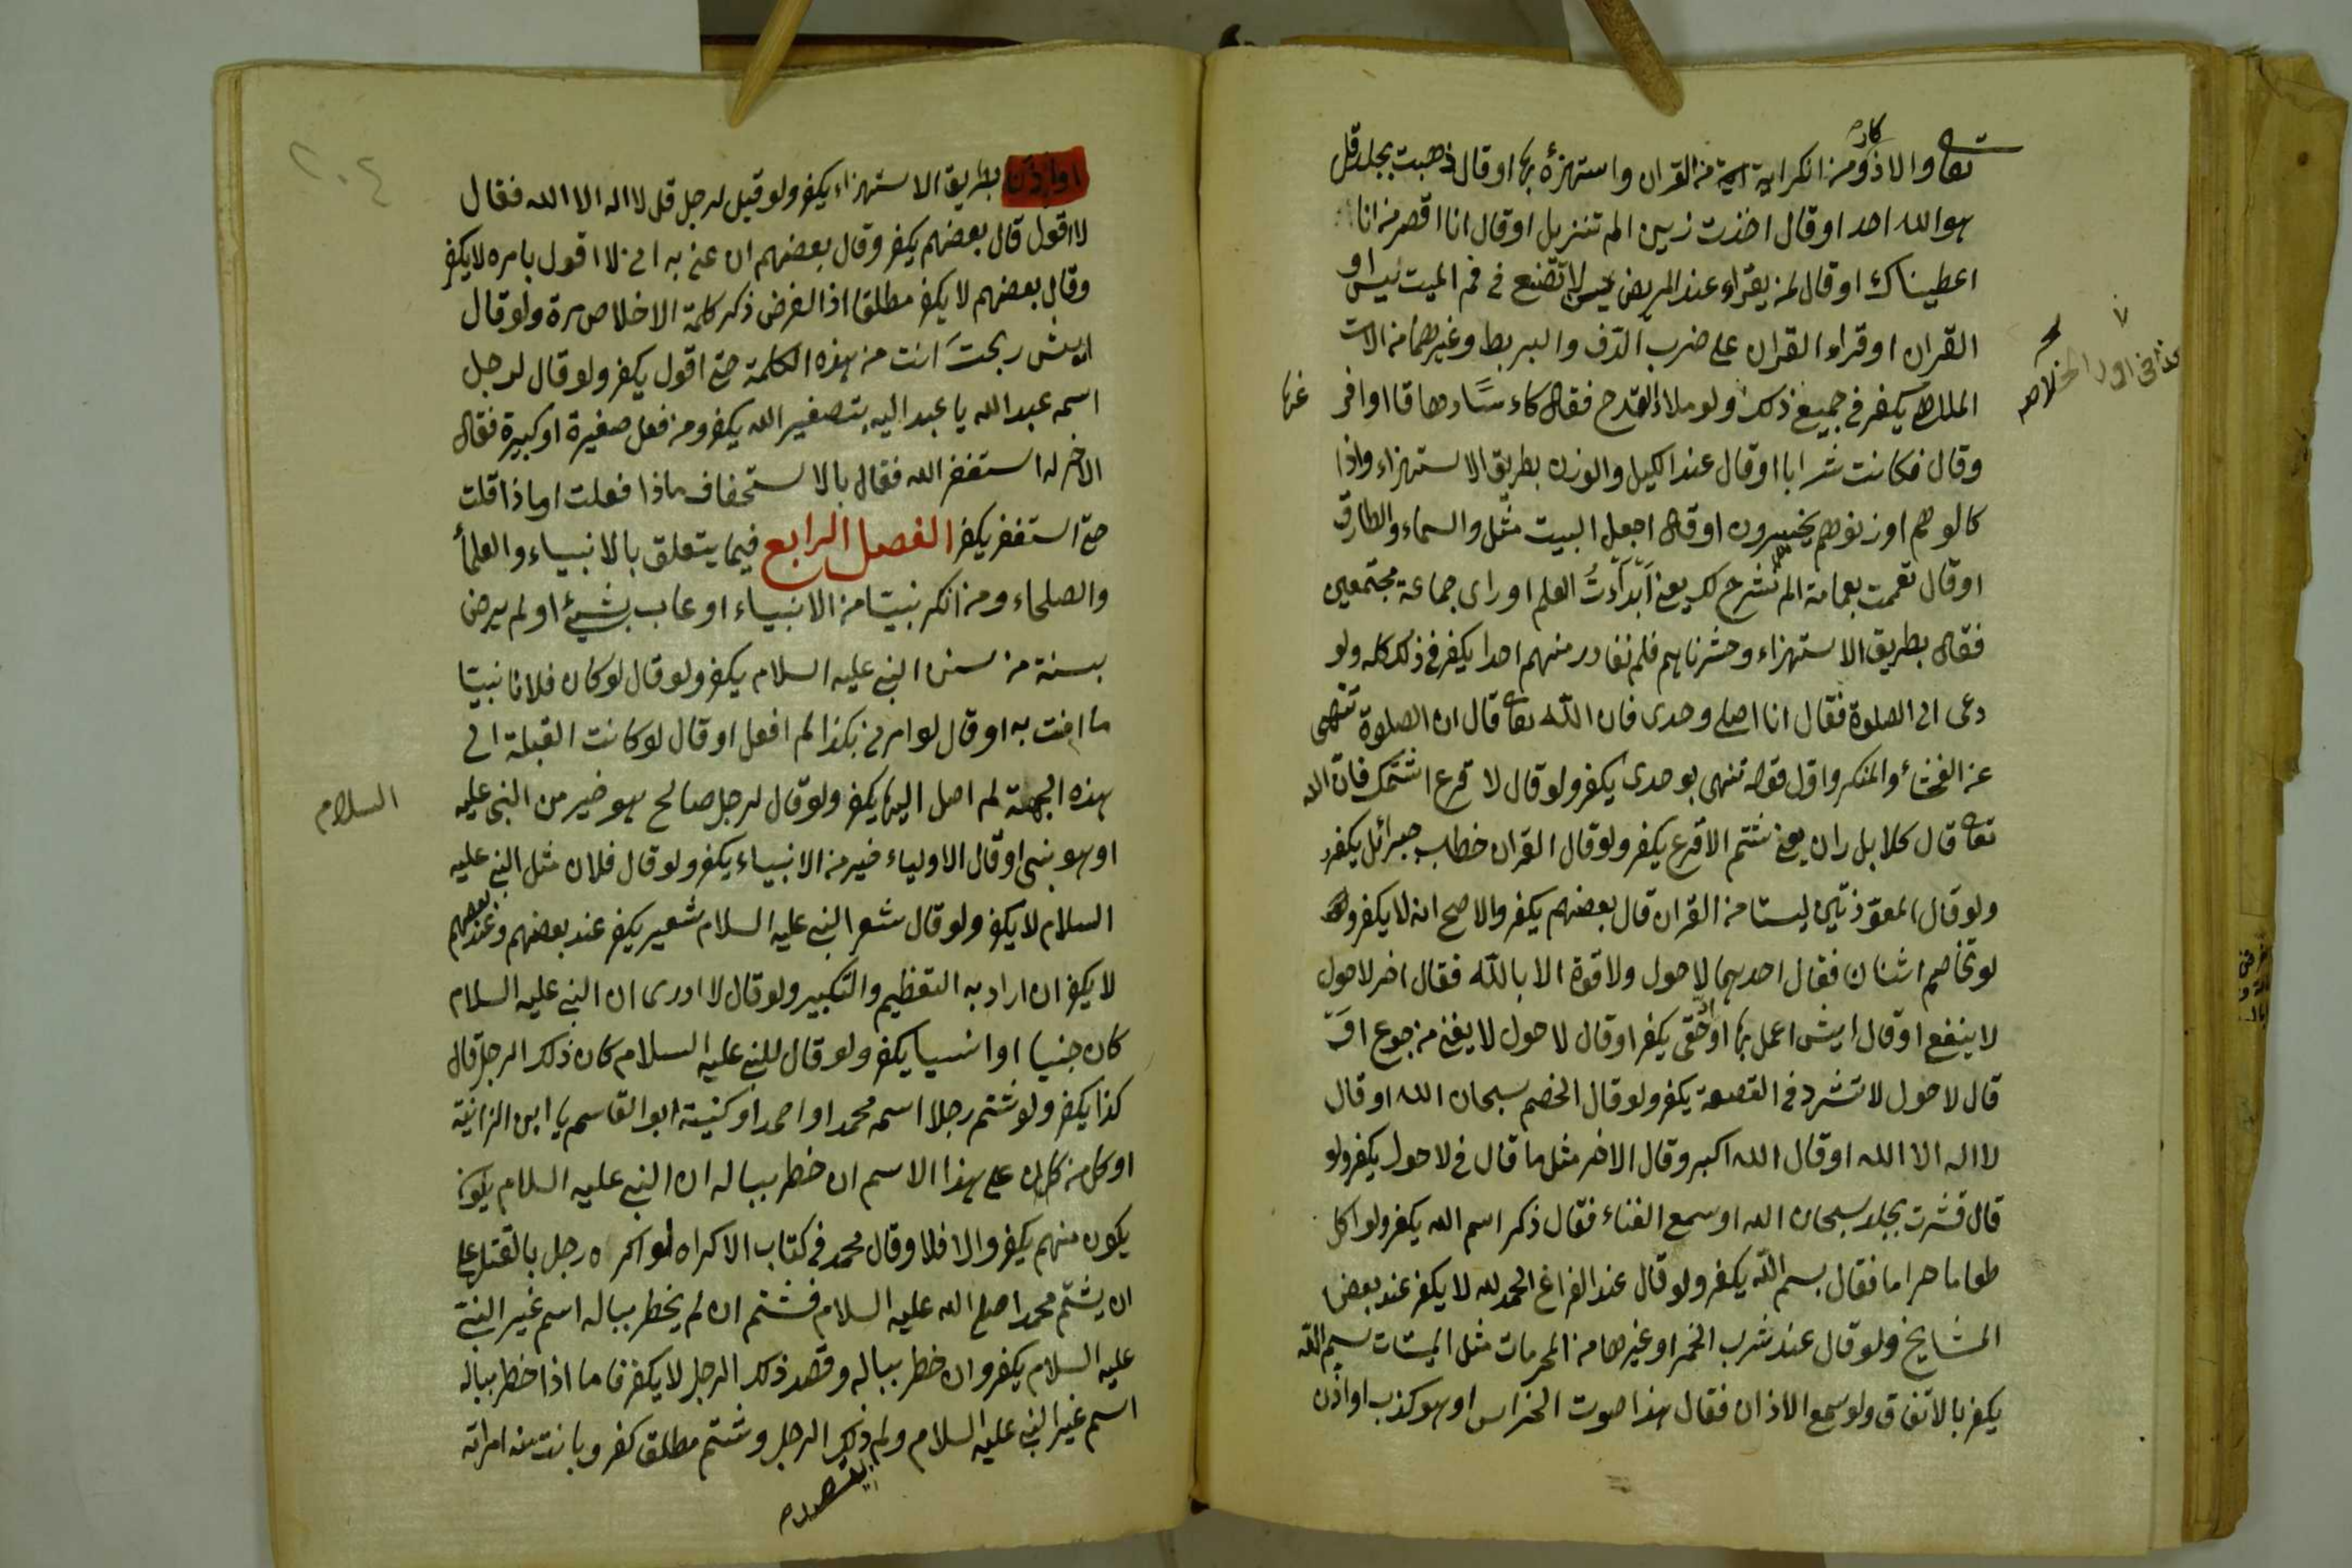 تعا والاذكار ومن انكر اية من القران واستهزأ بها او قال ذهبت بجلد قل
هو الله احد او قال اخذت زيق الم تنزيل او قال انا اقصر من انا
اعطيناك او قال لمن يقراء عند المريض يس لا تضع في فم الميت يس او
القران او قراء القران على ضرب الدف والبربط وغيرهما من الات
الملاهي يكفر في جميع ذلك ولو ملاء القدح فقال كاءسا دهاقا او افرغها
وقال فكانت شرابا او قال عند الكيل والوزن بطريق الاستهزاء واذا
كالوهم او زنوهم يخسرون او قال اجعل البيت مثل والسماء والطارق
او قال تعممت بعمامة الم نشرح لك يعني ابدأت العلم او راى جماعة مجتمعين
فقال بطريق الاستهزاء وحشرناهم فلم نغادر منهم احدا يكفر في ذلك كله ولو
دعى الى الصلوة فقال انا اصلي وحدى فان الله تعا قال ان الصلوة تنهى
عن الفحشاء والمنكر واول قوله تنهى بوحدى يكفر ولو قال لاقرع اشتمك فان الله
تعا قال كلا بل ران يعني شتم الاقرع يكفر ولو قال القران خطاب جبرائل يكفر
ولو قال المعوذتين ليستا من القران قال بعضهم يكفر والاصح انه لا يكفر
لو تخاصم اثنان فقال احدهما لا حول ولا قوة الا بالله فقال اخر لا حول
لا ينفع او قال ايش اعمل بها يكفر او قال لا حول لا يغني من جوع او
قال لا حول لا تثرد في القصعة يكفر ولو قال الخصم سبحان الله او قال
لا اله الا الله او قال الله اكبر وقال الاخر مثل ما قال في لا حول يكفر ولو
قال قشرت بجلد سبحان الله او سمع الغناء فقال ذكر اسم الله يكفر ولو اكل
طعاما حراما فقال بسم الله يكفر ولو قال عند الفراغ الحمد لله لا يكفر عند بعض
المشايخ ولو قال عند شرب الخمر او غيرها من المحرمات مثل الميتات بسم الله
يكفر بالاتفاق ولو سمع الاذان فقال هذا صوت الخراس او هو كذب او اذن
او اذن بطريق الاستهزاء يكفر ولو قيل لرجل قل لا اله الا الله فقال
لا اقول قال بعضهم يكفر وقال بعضهم ان عنى به انى لا اقول بامره لا يكفر
وقال بعضهم لا يكفر مطلقا اذ الغرض ذكر كلمة الاخلاص مرة ولو قال
ايش ربحت انت من هذه الكلمة حتى اقول يكفر ولو قال لرجل
اسمه عبد الله يا عبد اليه بتصغير الله يكفر ومن فعل صغيرة او كبيرة فقال
الاخر له استغفر الله فقال بالاستخفاف ماذا فعلت او ماذا قلت
حتى استغفر يكفر الفصل الرابع فيما يتعلق بالانبياء والعلماء
والصلحاء ومن انكر نبيا من الانبياء او عاب بشيء او لم يرض
بسنة من سنن النبي عليه السلام يكفر ولو قال لو كان فلانا نبيا
ما امنت به او قال لو امرني بكذا لم افعل او قال لو كانت القبلة الى
هذه الجهة لم اصل اليها يكفر ولو قال لرجل صالح هو خير من النبي عليه السلام
او هو نبى او قال الاولياء خير من الانبياء يكفر ولو قال فلان مثل النبي عليه
السلام لا يكفر ولو قال شعر النبي عليه السلام شعير يكفر عند بعضهم وعند بعضهم
لا يكفر ان اراد به التعظيم والتكبير ولو قال لا ادرى ان النبي عليه السلام
كان جنيا او انسيا يكفر ولو قال للنبي عليه السلام كان ذلك الرجل قال
كذا يكفر ولو شتم رجلا اسمه محمد او احمد او كنيته ابو القاسم يا ابن الزانية
او كل من كان على هذا الاسم ان خطر بباله ان النبي عليه السلام
يكون منهم يكفر والا فلا وقال محمد في كتاب الاكراه لو اكره رجل بالقتل على
ان يشتم محمدا صلى الله عليه السلام فشتم ان لم يخطر بباله اسم غير النبي
عليه السلام يكفر وان خطر بباله وقصد ذلك الرجل لا يكفر فاما اذا خطر بباله
اسم غير النبي عليه السلام ولم يقصد ذلك الرجل وشتم مطلق كفر وبانت منه امراته